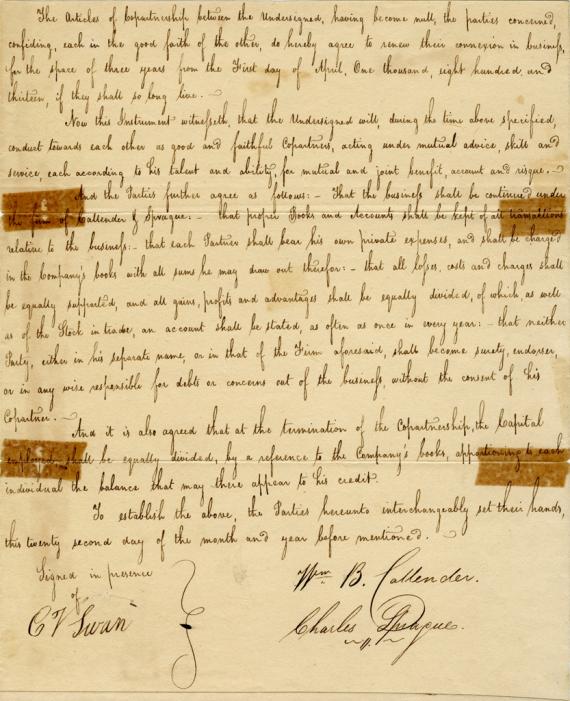 The Articles of Copartnership between the Undersigned, having become null, the parties concerned,
confiding, each in the good faith of the other, do hereby agree to renew their connexion in businefs,
for the space of three years from the First day of April, One thousand, eight hundred, and
thirteen, if they shall so long live.
Now this Instrument witnefseth, that the Undersigned will, during the time above specified,
conduct towards each other as good and faithful Copartners, acting under mutual advice, skill and
service, each according to his talent and ability, for mutual and joint benefit, account and risque.
And the Parties further agree as follows:- That the businefs shall be continued under
the firm of Callender & Sprague:- that proper Books and Accounts shall be kept of all transactions
relative to the businefs:- that each Partner shall bear his own private expenses, and shall be charged
in the Company's books with all sums he may draw out therefor:- that all lofses, costs and charges shall
be equally supported, and all gains, profits and advantages shall be equally divided, of which, as well
as of the Stock in trade, an account shall be stated, as often as once in every year:- that neither
Party, either in his separate name, or in that of the Firm aforesaid, shall become surety, endorser,
or in any wise responsible for debts or concerns out of the businefs, without the consent of his
Copartner.
And it is also agreed that at the termination of the Copartnership, the Capital
employed shall be equally divided, by a reference to the Company's books, apportioning to each
individual the balance that may there appear to his credit.
To establish the above, the Parties hereunto interchangeably set their hands,
this twenty second day of the month and year before mentioned.
Signed in presence
of
C V Swan
Wm B. Callender.
Charles Sprague.